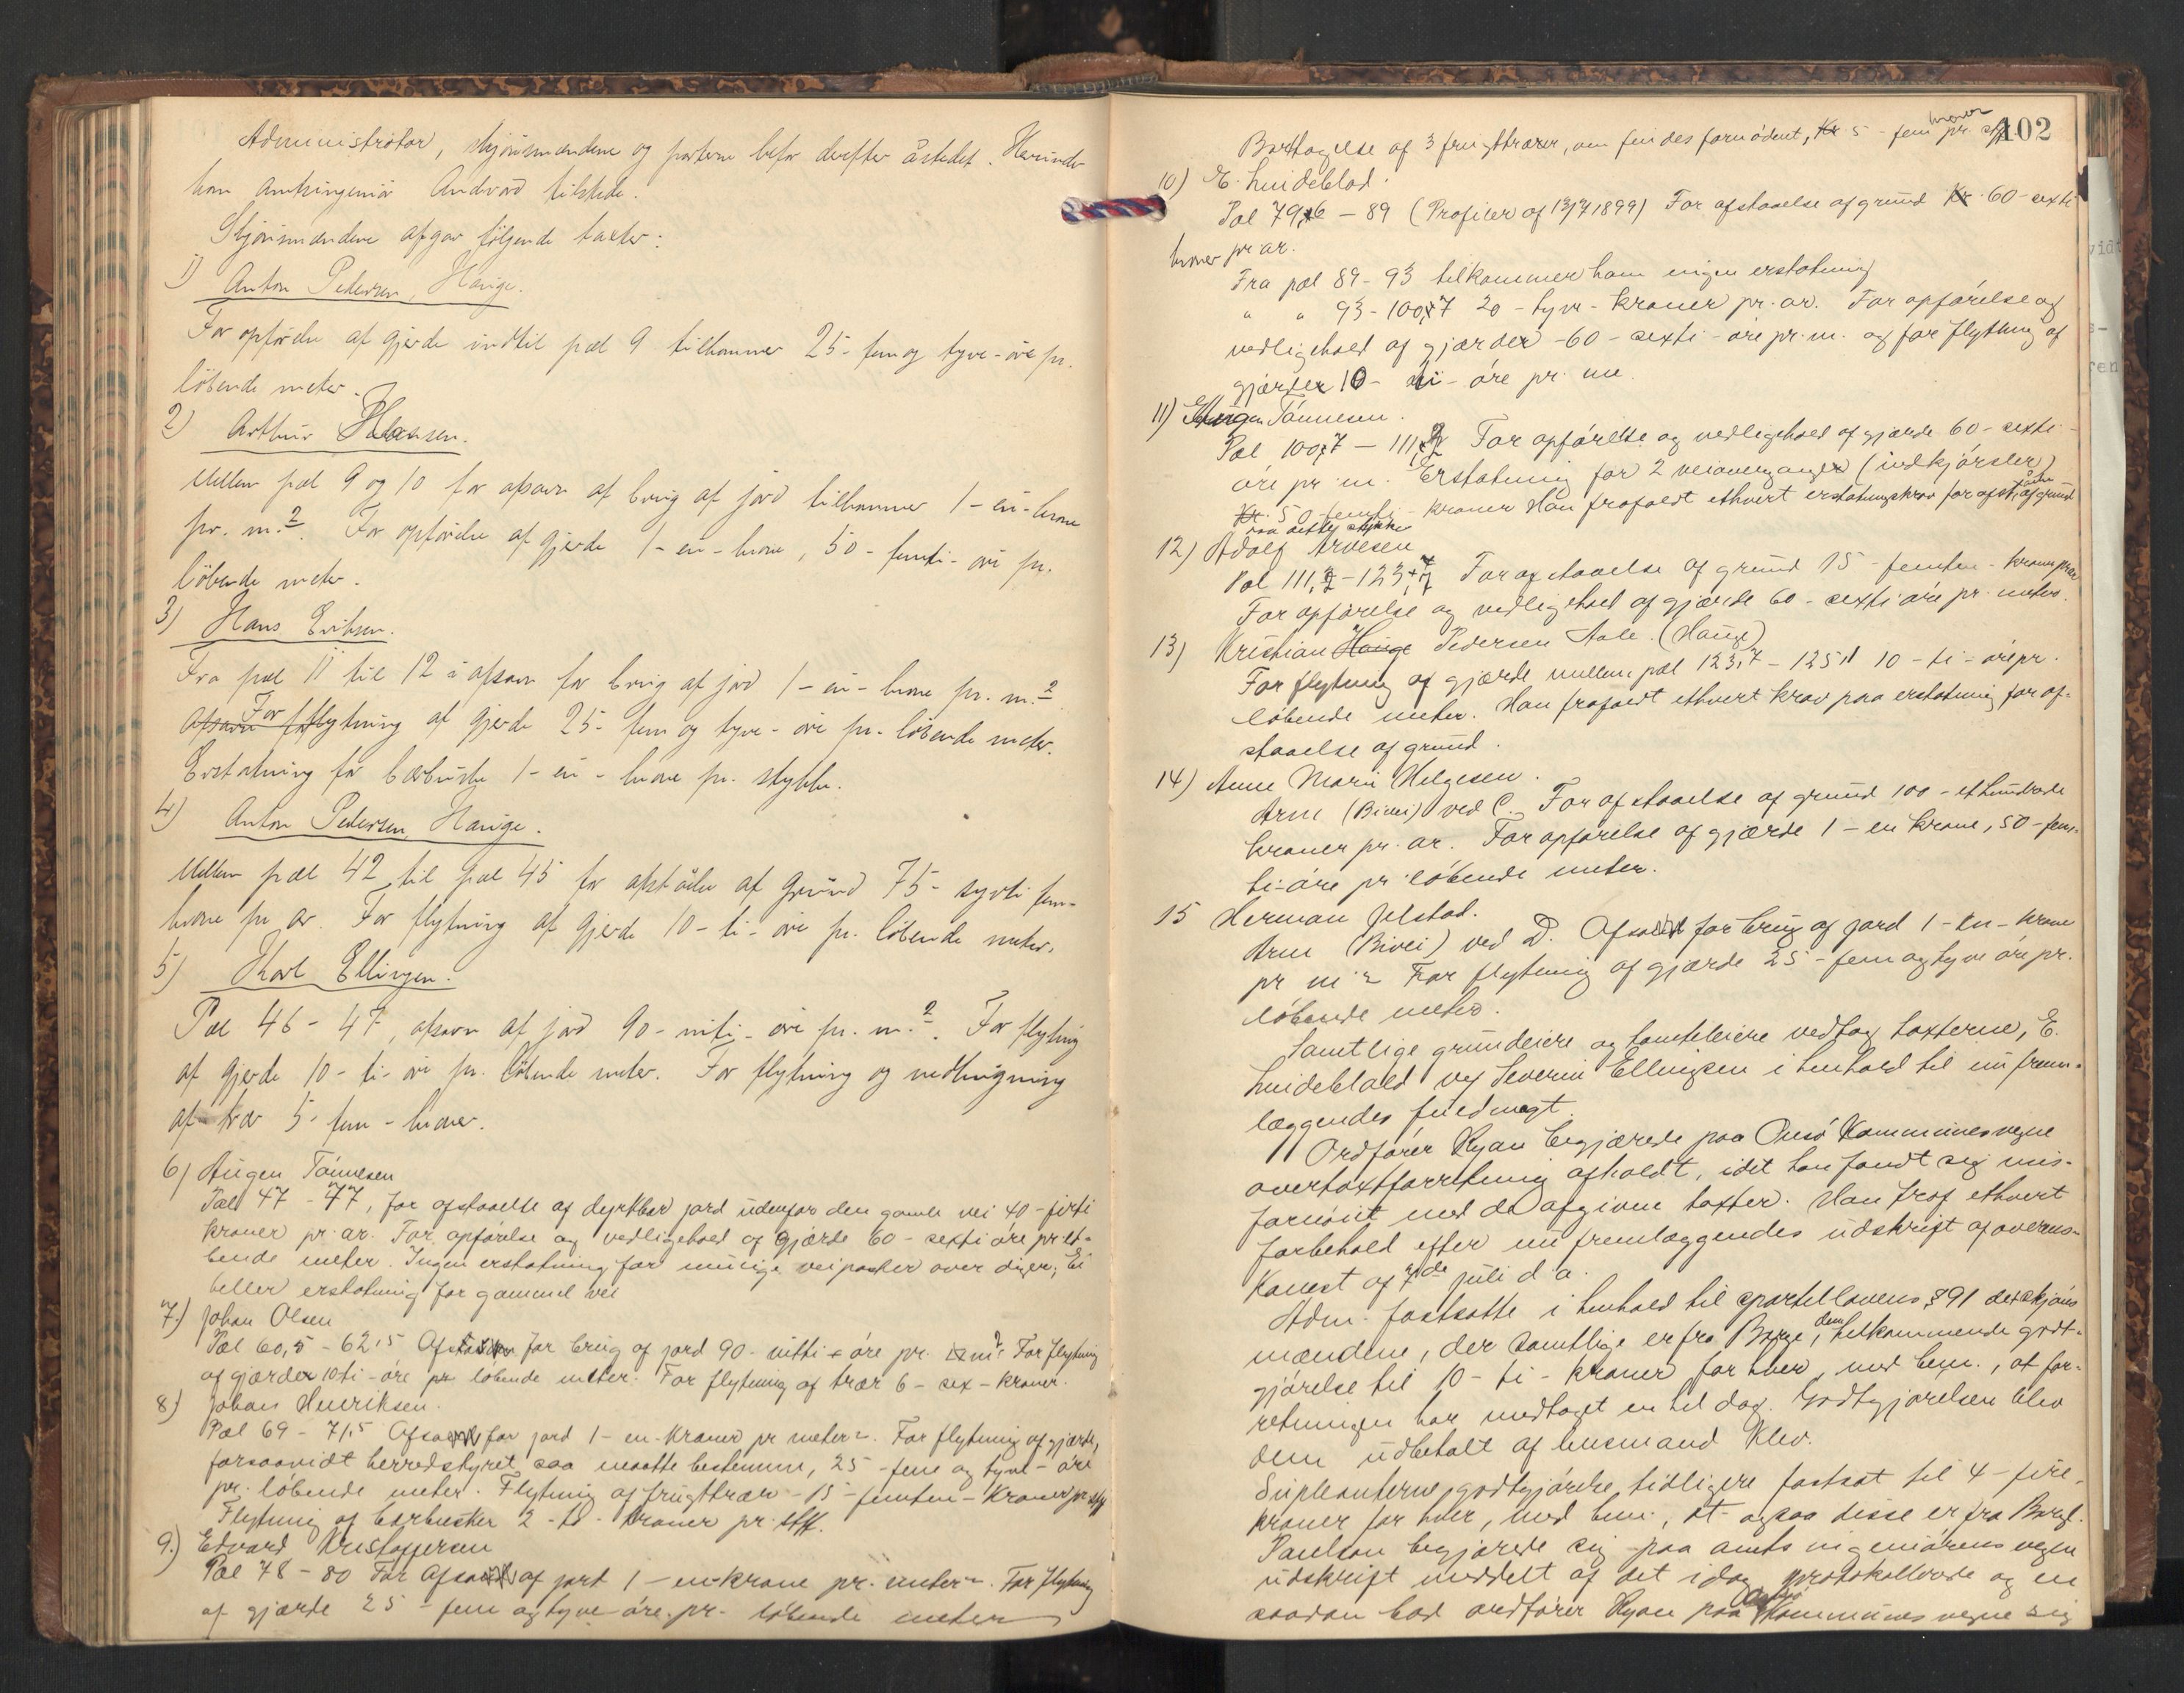 Administrator, skjønsmændene og parterne befor derefter åstedet. Herunder
kom Amtsingeniør Andvord tilstede.
Skjønsmændene afgav følgende taxter:
1) Anton Pedersen, Hauge.
For opførelse af gjerde indtil pæl 9 tilkommer 25- fem og tyve- øre pr.
løbende meter.
2) Arthur Hansen.
Mellem pæl 9 og 10 for afsavn af brug af jord tilkommer 1- en- krone
pr. m.2. For opførelse af gjerde 1- en- krone, 50- femti- øre pr.
løbende meter.
3) Hans Eriksen.
Fra pæl 11 til 12 i afsavn for brug af jord 1- en- krone pr. m.2
Afsavn for For flytning af gjerde 25- fem og tyve- øre pr. løbende meter.
Erstatning for bærbuske 1- en- krone pr. stykke.
4) Anton Pedersen, Hauge.
Mellem pæl 42 til pæl 45 for afståelse af Grund 75- sytti fem-
krone pr ar. For flytning af gjerde 10- ti- øre pr. løbende meter.
5) Karl Ellingsen.
Pæl 46 - 47, afsavn af jord 90- nitti- øre pr. m.2. For flytning
af gjerde 10- ti- øre pr. løbende meter. For flytning og nedhugning
af trær 5- fem- kroner.
6) Augen Tønnesen
Pæl 47 - 77, for afstaaelse af dyrkbar jord udenfor den gamle vei 40- firti
kroner pr. ar. For opførelse og vedligehold af gjærde 60- sexti øre pr lø-
bende meter. Ingen erstatning for mulige veiparter over diger; Ei
heller erstatning for gammel vei
7.) Johan Olsen
Pæl 60,5 - 62,5 Afsavn for brug af jord 90- nitti - øre pr. m2. For flytning
af gjærder 10 ti- øre pr løbende meter. For flytning af trær 6- sex- kroner.
8) Johan Henriksen.
Pæl 69 - 71,5 Afsavn for jord 1- en- kroner pr meter2. For flytning af gjærde,
forsaavidt herredstyret saa maatte bestemme, 25 - fem og tyve- øre
pr. løbende meter. Flytning af frugttrær - 15- femten- kroner pr. stk
Flytning af bærbusker 2- to- kroner pr. stk.
9.) Edvard Kristoffersen
Pæl 78 - 80 For Afsavn af jord 1 - en krone pr. meter2. For flytning
af gjærde 25 - fem og tyve øre pr. løbende meter
102
Borttagelse af 3 frugttrærer, om findes fornødent, Kr 5 - fem kroner pr. stk
10) E. Lindeblad.
Pæl 79,6 - 89 (Profiler af 13/7 1899) For afstaaelse af grund Kr. 60- sexti
kroner pr ar.
Fra pæl 89 - 93 tilkommer ham ingen erstatning
" " 93 - 100,7 20 - tyve - kroner pr. ar. For opførelse og
vedligehold af gjærder - 60 - sexti - øre pr. m. og for flytning af
gjærder 10 - ti - øre pr. m.
11) Augen Tønnesen.
Pæl 100,7 - 111,2 For opførelse og vedligehold af gjærde 60- sexti-
øre pr. m. Erstatning for 2 veiovergange (indkjørsler)
Kr. 50 femti - kroner Han frafaldt ethvert erstatningskrav for afst. af grund
paa dette stykke
12) Adolf Arvesen
Pæl 111,2 - 123,7 For afstaaelse af grund 15 - femten - kroner pr ar
For opførelse og vedligehold af gjærde 60 - sexti øre pr. meter.
13) Kristian Hauge Pedersen Aale. (Hauge)
For flytning af gjærde mellem pæl 123,7 - 125,1 10 - ti - øre pr.
løbende meter. Han frafaldt ethvert krav paa erstatning for af-
staaelse af grund.
14) Anne Marie Helgesen.
Arm (Bivei) ved C. For afstaaelse af grund 100 - et hundrede
kroner pr. ar. For opførelse af gjærde 1 - en krone, 50 - fem-
ti- øre pr løbende meter.
15 Herman Jelstad.
Arm (Bivei) ved D. Afsavn for brug af jord 1 - en - krone
pr m2 For flytning af gjærde 25 - fem og tyve øre pr.
løbende meter.
Samtlige grundeiere og tomteleiere vedtog taxterne, E.
Lindeblad ved Severin Ellingsen i henhold til en frem-
læggendes fuldmagt.
Ordfører Ryan begjærede paa Onsø Kommunes vegne
overtaxtforretning afholdt, idet han fandt sig mis-
fornøiet med de afgivne taxter. Han frof ethvert
forbehold efter en fremlæggendes udskrift af overens-
komst af 7de juli d. a.
Adm. fastsatte i henhold til sportellovens § 91 det skjøns
mændene, der samtlige er fra Borge, dem tilkommende godt-
gjørelse til 10 - ti - kroner for hver, med bem., at for-
retningen har medtaget en hel dag. Godtgjørelsen blev
dem udbetalt af lensmand Klev.
Supleanternes godtgjørelse tidligere fastsat til 4 - fire -
kroner for hver, med bem., at ogsaa disse er fra Borge.
Paulson begjærede sig paa amtsingeniørens vegne
udskrift meddelt af det idag protokollerede og en
saadan bad ordfører Ryan paa Onsø Kommunes vegne sig